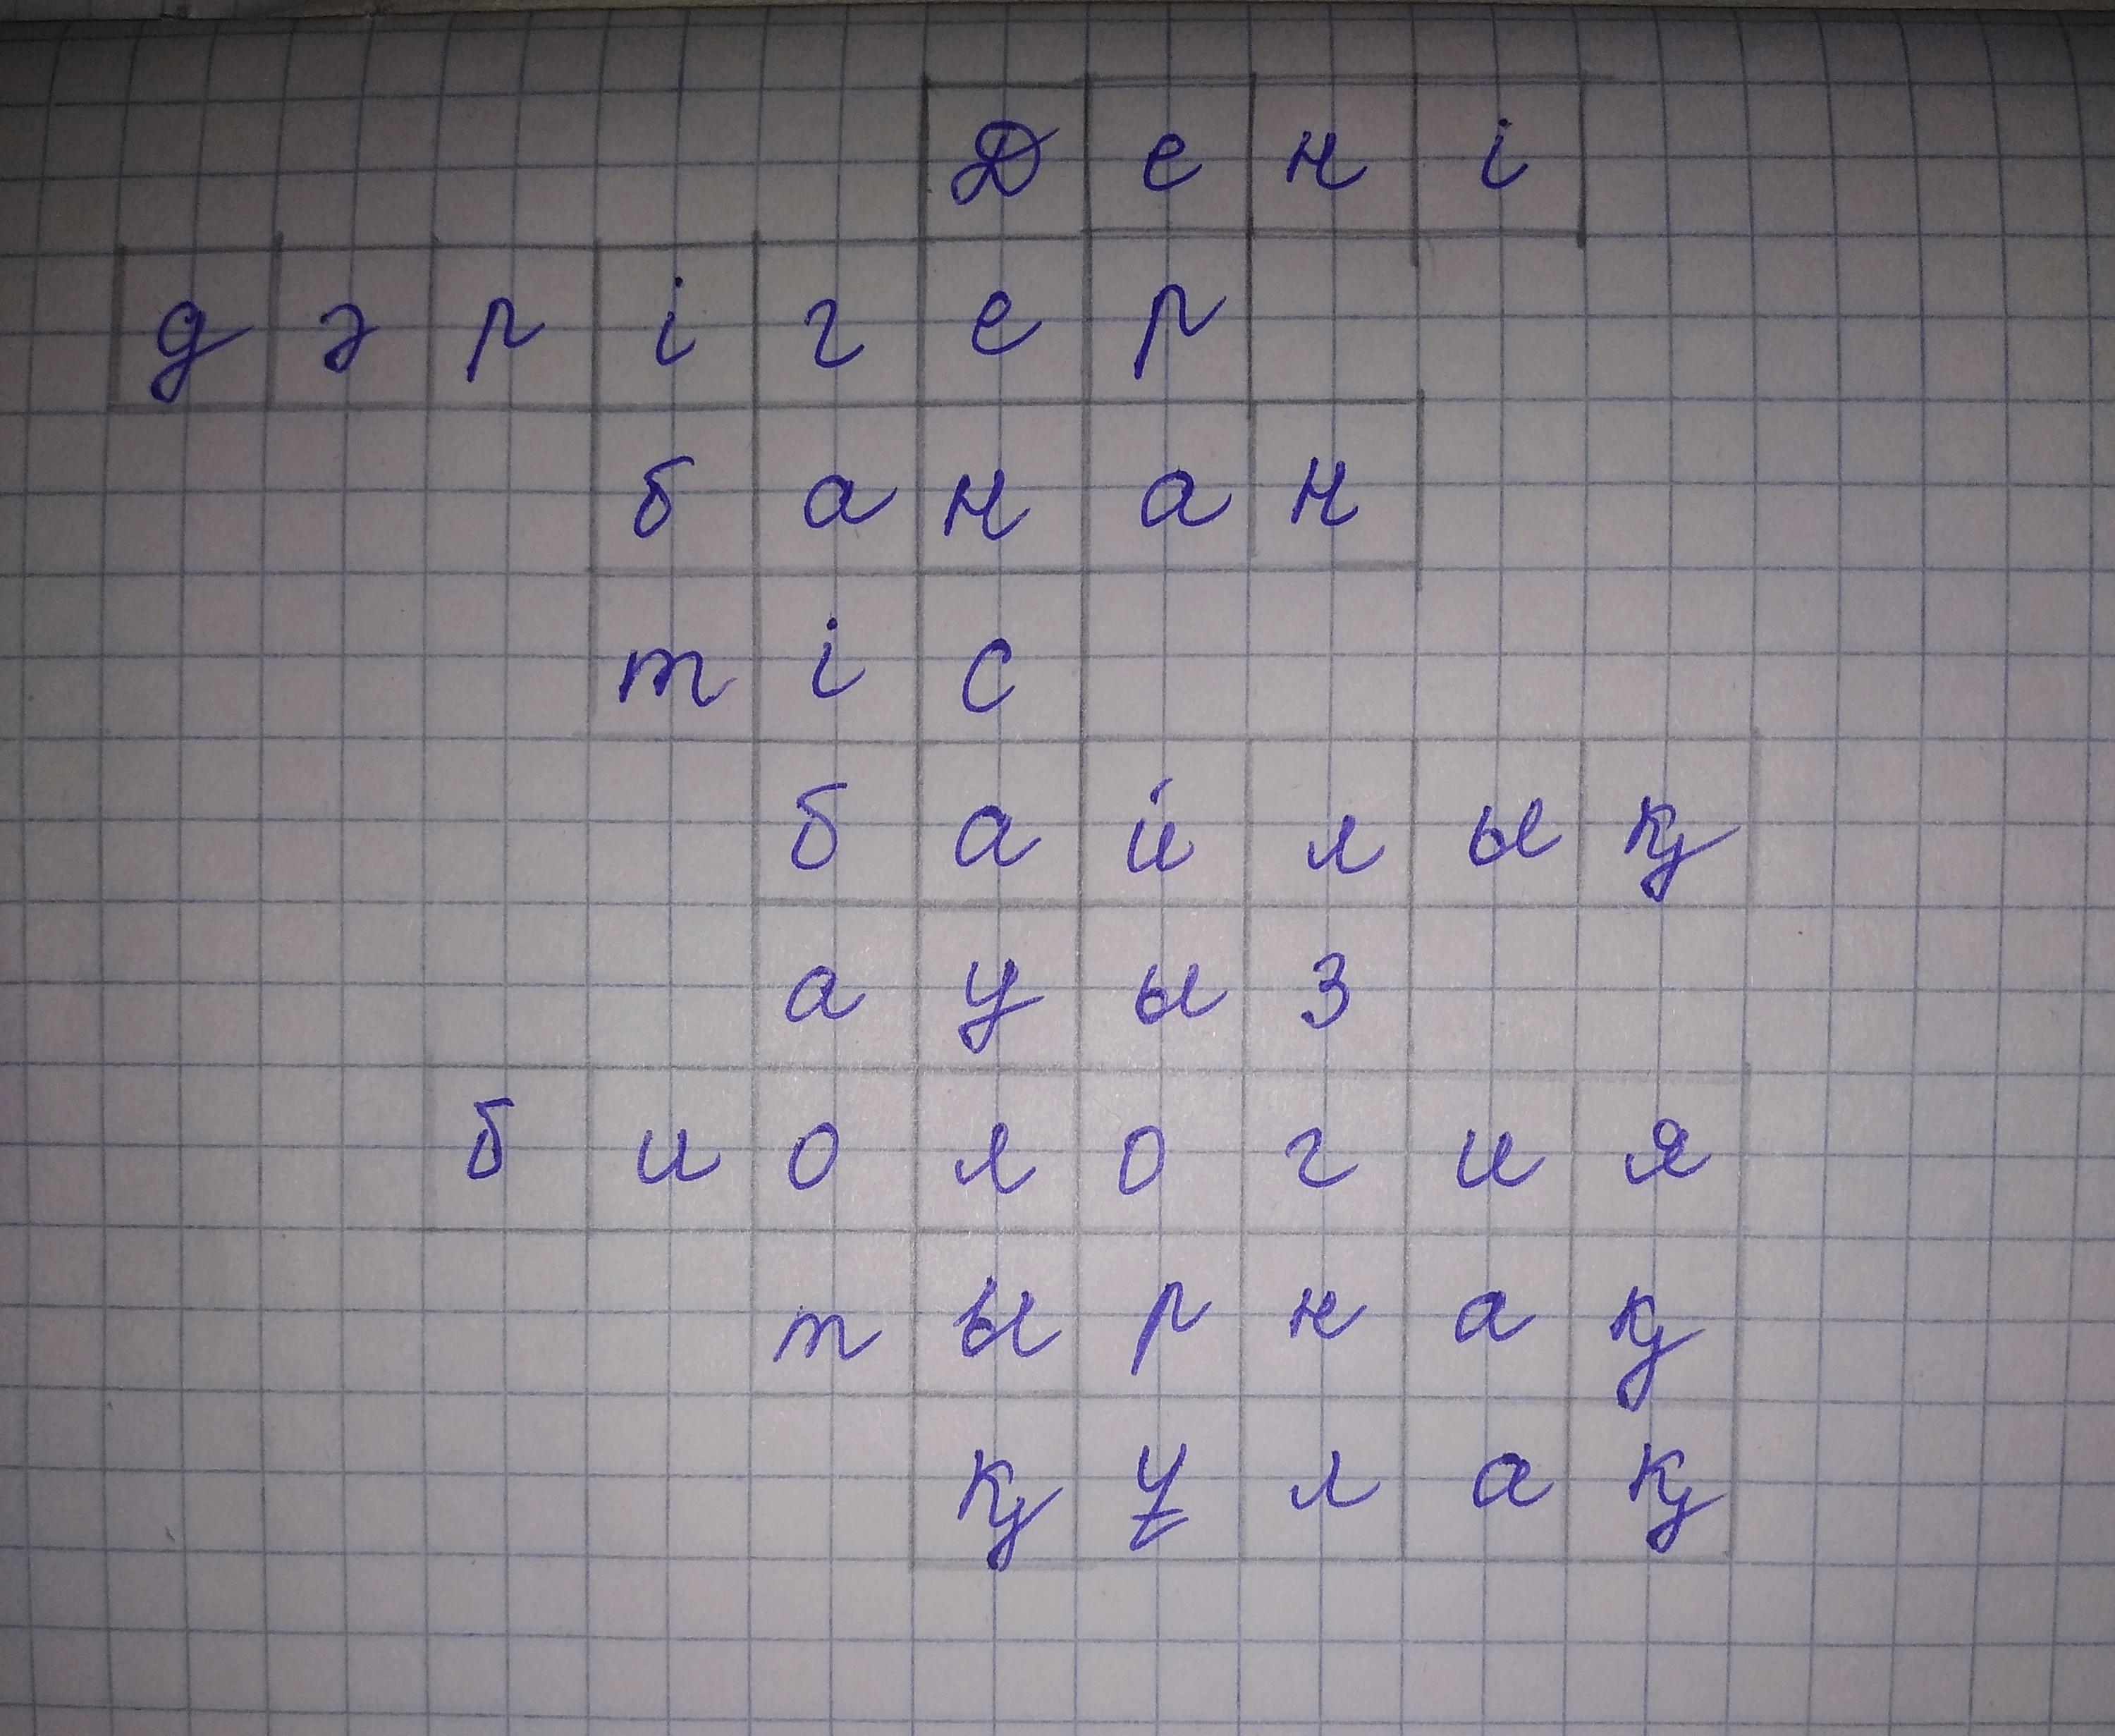 Дені
дәрігер
банан
тіс
байлық
ауыз
биология
тырнақ
құлақ